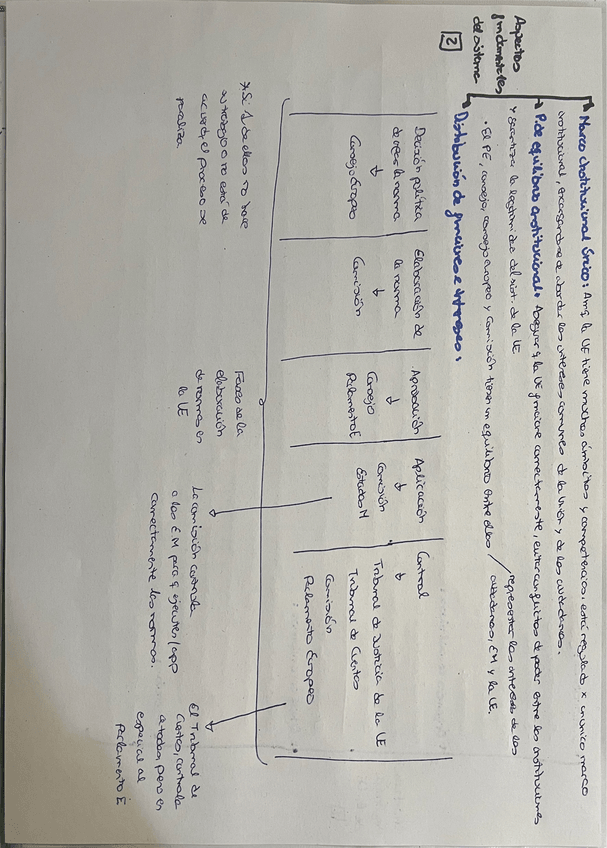 Aspectos
fundamentales
del sistema
2
Marco institucional único: Amq la UE tiene muchos ámbitos y competencias, está regulado x un único marco
institucional, encargandose de abordar los intereses comunes de la Unión y de los ciudadanos.
P. de equilibrio institucional: Asegurar q la UE funcione correctamente, evitar conflictos de poder entre las instituciones
y garantizar la legitimidad del sist. de la UE
· El PE, consejo, consejo europeo y Comisión tienen un equilibrio entre ellos / representar los intereses de los
ciudadanos, EM y la UE.
Distribución de funciones e intereses:
Decisión política
de crear la norma
↓
Consejo Europeo
Elaboración de
la norma
↓
Comisión
Aprobación
↓
Consejo
Parlamento E
Aplicación
↓
Comisión
Estados M
Control
↓
Tribunal de Justicia de la UE
Tribunal de Cuentas
Comisión
Parlamento Europeo
* Si 1 de ellos no hace
su trabajo o no está de
acuerdo, el proceso se
paraliza
Fases de la
elaboración
de normas en
la UE
La comisión controla
a los E.M para q ejecuten/app
correctamente las normas.
El Tribunal de
Cuentas, controla
a todos, pero en
especial al
Parlamento E